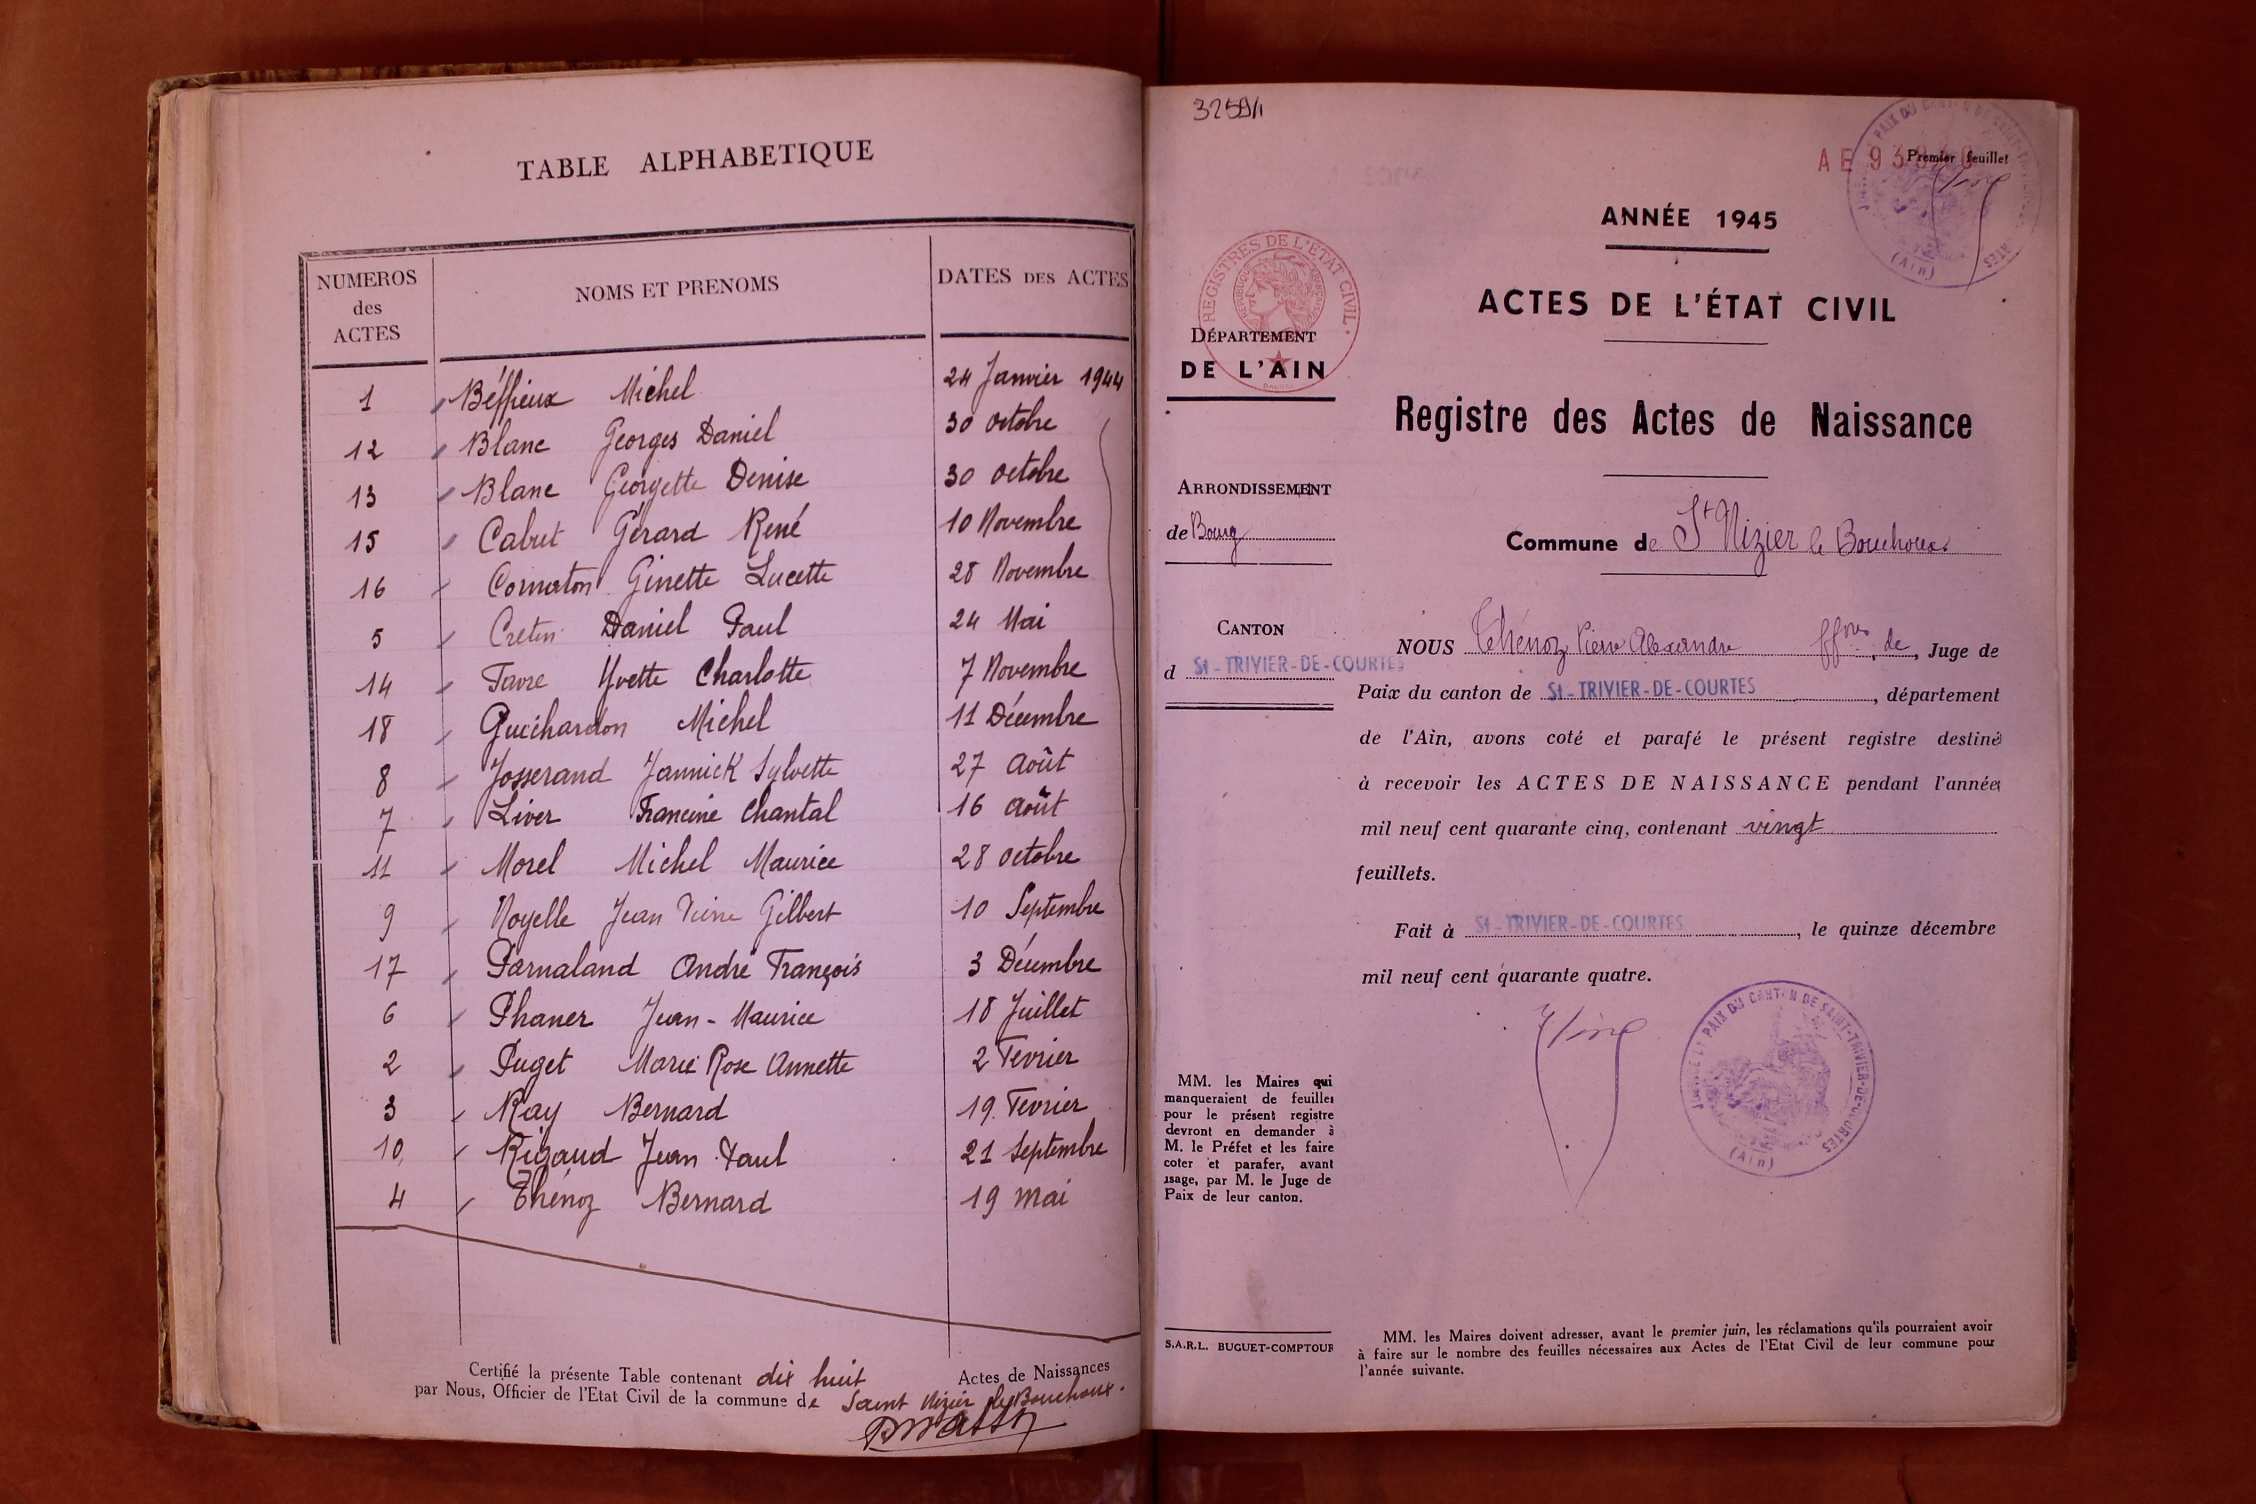 TABLE ALPHABETIQUE
NUMEROS des ACTES NOMS ET PRENOMS DATES DES ACTES
1 Béffieux Michel 24 Janvier 1944
12 Blanc Georges Daniel 30 octobre
13 Blanc Georgette Denise 30 octobre
15 Cabut Gérard René 10 Novembre
16 Cornaton Ginette Lucette 28 Novembre
5 Cretin Daniel Paul 24 Mai
14 Favre Yvette Charlotte 7 Novembre
18 Guichardon Michel 11 Décembre
8 Josserand Jannick Sylvette 27 Août
7 Liver Francine Chantal 16 Août
11 Morel Michel Maurice 28 octobre
9 Noyelle Jean Pierre Gilbert 10 Septembre
17 Parnaland André François 3 Décembre
6 Phaner Jean-Maurice 18 Juillet
2 Puget Marie Rose Annette 2 Fevrier
3 Ray Bernard 19 Fevrier
10 Rigaud Jean Paul 21 Septembre
4 Thénoz Bernard 19 Mai
Certifié la présente Table contenant dix huit Actes de Naissances
par Nous, Officier de l'Etat Civil de la commune de Saint Nizier le Bouchoux.
Premier feuillet
ANNÉE 1945
ACTES DE L'ÉTAT CIVIL
REGISTRES DE L'ÉTAT CIVIL
DÉPARTEMENT
DE L'AIN
Registre des Actes de Naissance
ARRONDISSEMENT
de Bourg
Commune de St Nizier le Bouchoux
CANTON
d St-TRIVIER-DE-COURTES
NOUS Thénoz Pierre Alexandre ffons de, Juge de
Paix du canton de St-TRIVIER-DE-COURTES, département
de l'Ain, avons coté et parafé le présent registre destiné
à recevoir les ACTES DE NAISSANCE pendant l'année
mil neuf cent quarante cinq, contenant vingt
feuillets.
Fait à St-TRIVIER-DE-COURTES, le quinze décembre
mil neuf cent quarante quatre.
PAIX DU CANTON DE SAINT-TRIVIER-DE-COURTES
(Ain)
MM. les Maires qui
manqueraient de feuilles
pour le présent registre
devront en demander à
M. le Préfet et les faire
coter et parafer, avant
usage, par M. le Juge de
Paix de leur canton.
S.A.R.L. BUGUET-COMPTOUR
MM. les Maires doivent adresser, avant le premier juin, les réclamations qu'ils pourraient avoir
à faire sur le nombre des feuilles nécessaires aux Actes de l'Etat Civil de leur commune pour
l'année suivante.